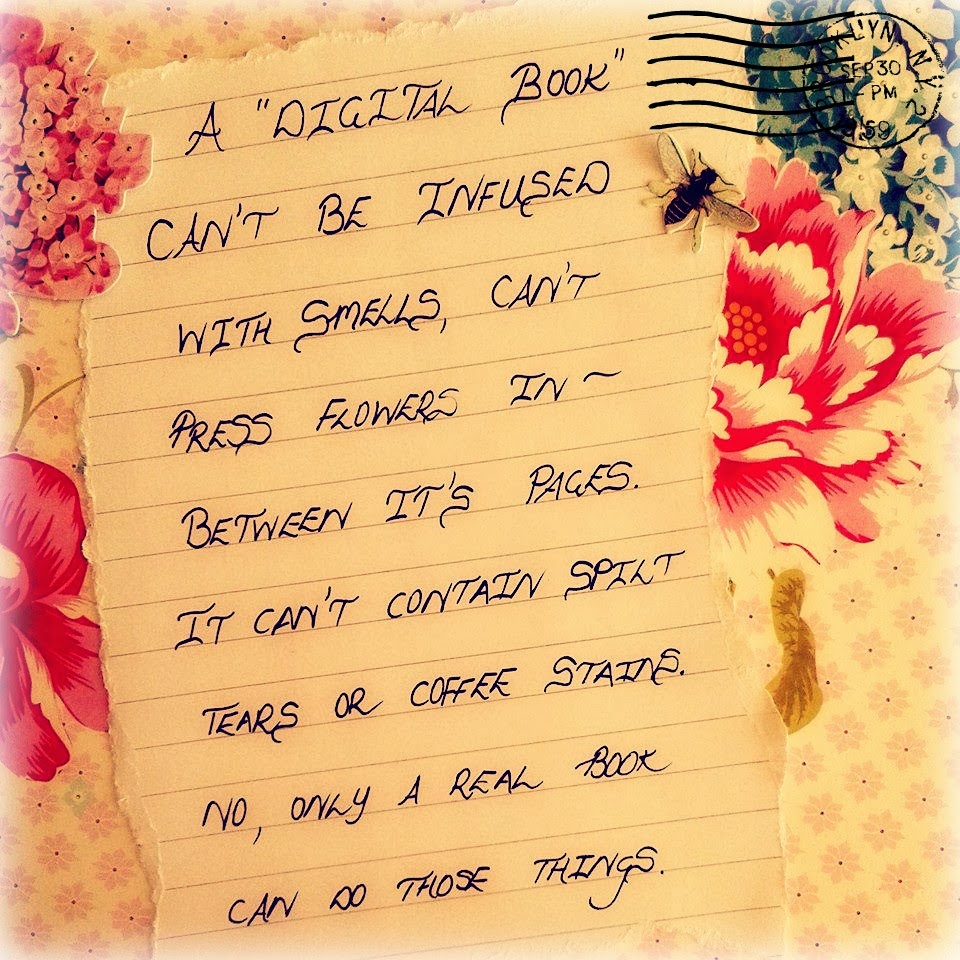 A "DIGITAL BOOK"
CAN'T BE INFUSED
WITH SMELLS, CAN'T
PRESS FLOWERS IN ~
BETWEEN IT'S PAGES.
IT CAN'T CONTAIN SPILT
TEARS OR COFFEE STAINS.
NO, ONLY A REAL BOOK
CAN DO THOSE THINGS.
KLYN, N.Y. 2
SEP 30
PM
59